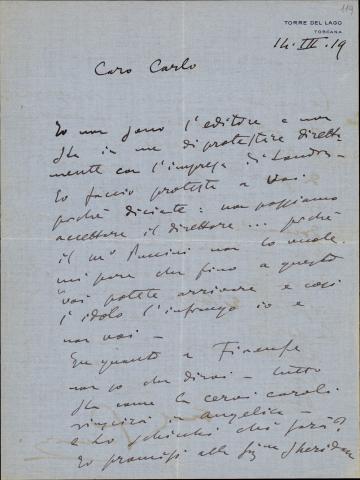 119
TORRE DEL LAGO
TOSCANA
14. III. 19
Caro Carlo
Io non sono l'editore e non
sta in me di protestare diretta
mente con l'impresa di Londra-
Io faccio proteste a Voi
poichè diciate: non possiamo
accettare il direttore ... poichè
il mº Puccini non lo vuole.
mi pare che fino a questo
Voi potete arrivare e così
l'idolo l'infrango io e
non voi -
In quanto a Firenze
non so che dirvi - tutto
sta come la
in Angelica -
e lo Schicchi chi farà?
Io promisi alla Sheridan